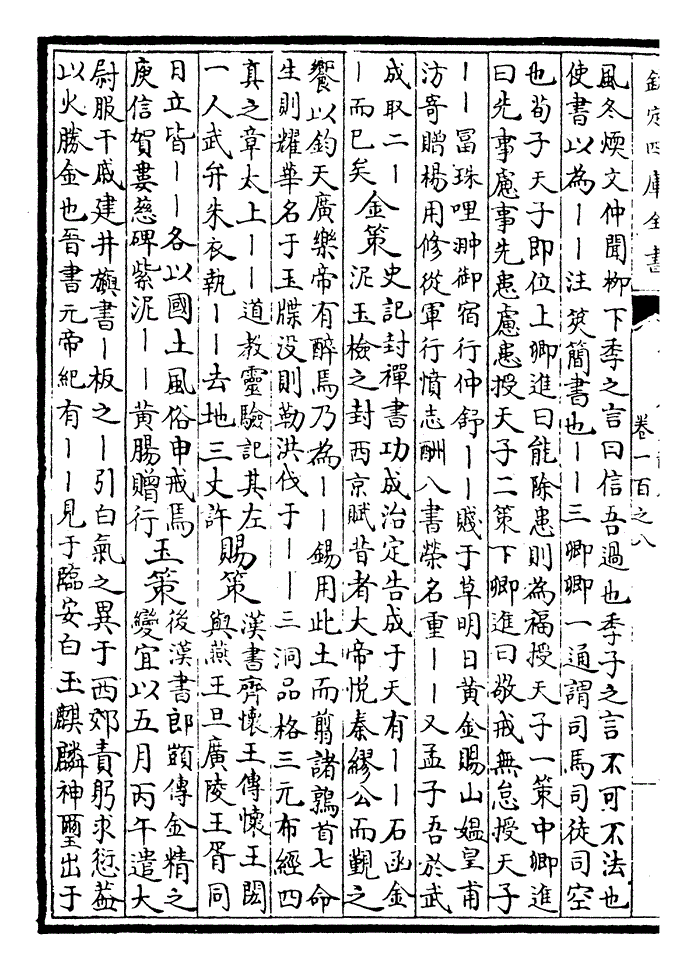 欽定四庫全書
卷一百之八
風冬煗文仲聞柳下季之言曰信吾過也季子之言不可不法也
使書以為――注筴簡書也――三卿卿一通謂司馬司徒司空
也荀子天子即位上卿進曰能除患則為福授天子一策中卿進
曰先事慮事先患慮患授天子二策下卿進曰敬戒無怠授天子
――冨珠哩翀御宿行仲舒――賤于草明日黄金賜山媼皇甫
汸寄贈楊用修從軍行憤志酬八書榮名重――又孟子吾於武
成取二―
―而已矣
金策
史記封禪書功成治定告成于天有――石函金
泥玉檢之封西京賦昔者大帝悦秦繆公而覲之
饗以鈞天廣樂帝有醉焉乃為――錫用此土而翦諸鶉首七命
生則耀華名于玉牒没則勒洪伐于――三洞品格三元布經四
真之章太上――道教靈驗記其左
一人武弁朱衣執――去地三丈許
賜策
漢書齊懷王傳懷王閎
與燕王旦廣陵王胥同
日立皆――各以國土風俗申戒焉
庾信賀婁慈碑紫泥――黄腸贈行
玉策
後漢書郎顗傳金精之
變宜以五月丙午遣大
尉服干戚建井旟書―板之―引白氣之異于西郊責躬求愆葢
以火勝金也晉書元帝紀有――見于臨安白玉麒麟神璽出于